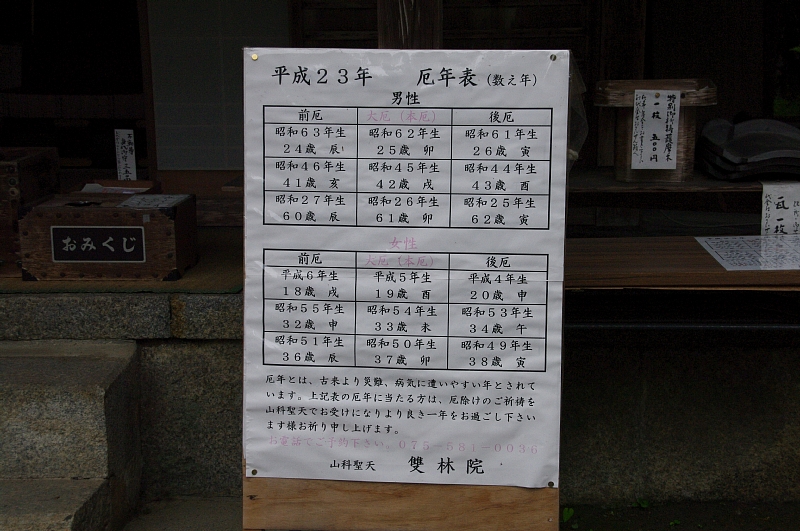 平成23年 厄年表(数え年)
男性
前厄 大厄(本厄) 後厄
昭和63年生 昭和62年生 昭和61年生
24歳 辰 25歳 卯 26歳 寅
昭和46年生 昭和45年生 昭和44年生
41歳 亥 42歳 戌 43歳 酉
昭和27年生 昭和26年生 昭和25年生
60歳 辰 61歳 卯 62歳 寅
女性
前厄 大厄(本厄) 後厄
平成6年生 平成5年生 平成4年生
18歳 戌 19歳 酉 20歳 申
昭和55年生 昭和54年生 昭和53年生
32歳 申 33歳 未 34歳 午
昭和51年生 昭和50年生 昭和49年生
36歳 辰 37歳 卯 38歳 寅
厄年とは、古来より災難、病気に遭いやすい年とされて
います。上記表の厄年に当たる方は、厄除けのご祈祷を
山科聖天でお受けになりより良き一年をお過ごし下さい
ます様お祈り申し上げます。
お電話でご予約下さい。075-581-0036
山科聖天 雙林院
おみくじ
一枚 五〇〇円
瓦一枚